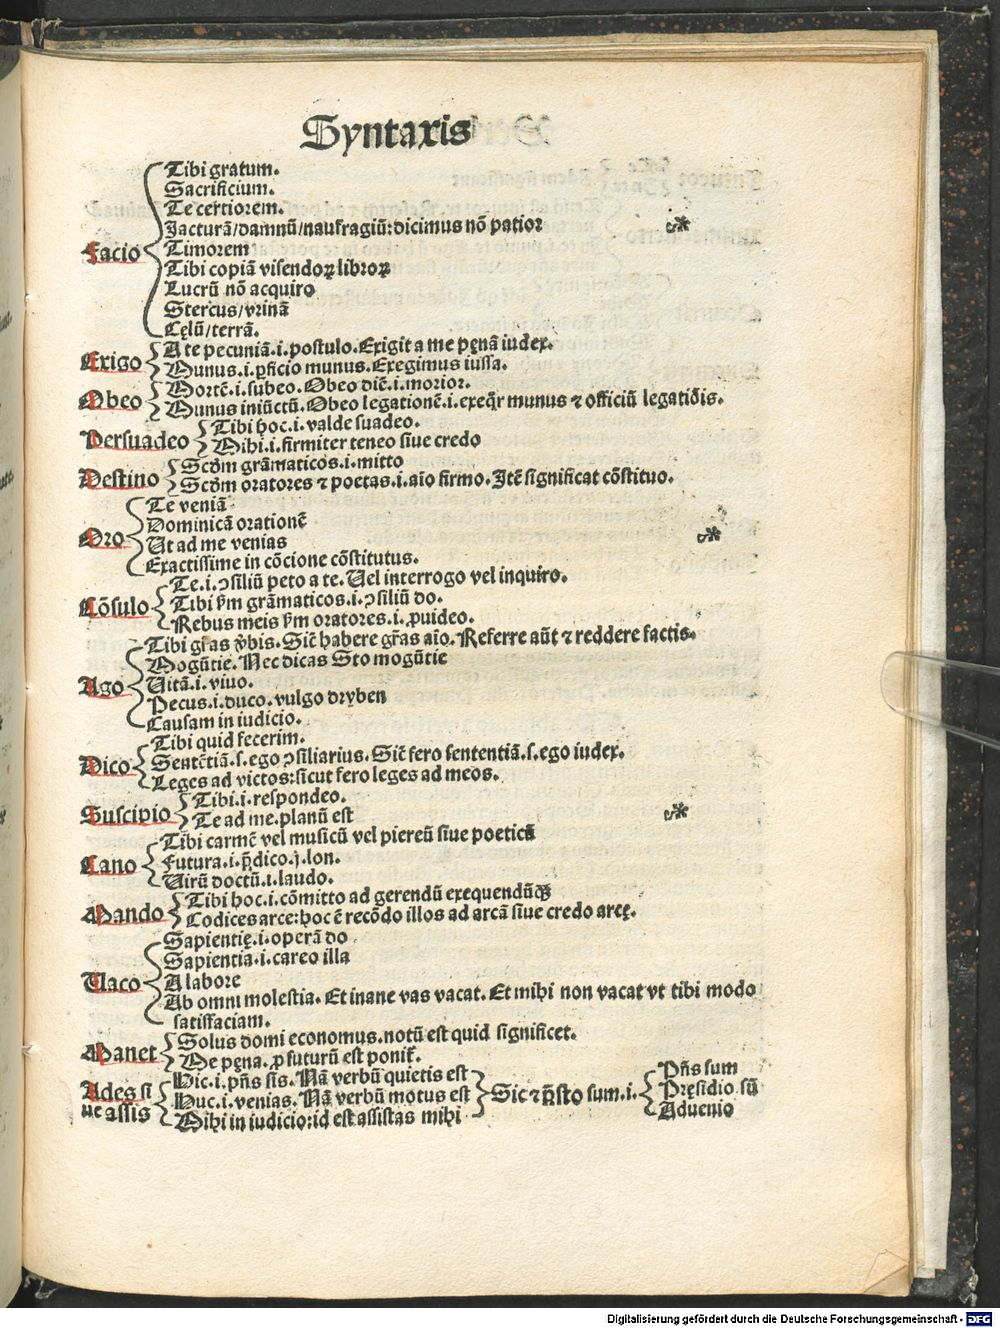 Syntaxis
Tibi gratum.
Sacrificium.
Te certiorem.
Jacturã/damnũ/naufragiũ: dicimus nõ patior
Facio Timorem
Tibi copiã visendoꝝ libroꝝ
Lucrũ nõ acquiro
Stercus/vrinã
Cęlũ/terrã.
Exigo A te pecuniã.i.postulo. Exigit a me pęnã iudex.
Munus.i.ꝑficio munus. Exegimus iussa.
Obeo Mortẽ.i.subeo. Obeo diẽ.i.morior.
Munus iniũctũ. Obeo legationẽ.i.exeq̃r munus ⁊ officiũ legatiõis.
Persuadeo Tibi hoc.i.valde suadeo.
Mihi.i.firmiter teneo siue credo
Destino Scdm̃ grãmaticos.i.mitto
Scdm̃ oratores ⁊ poetas.i.aio firmo. Itẽ significat cõstituo.
Te veniã
Dominicã orationẽ
Oro Ut ad me venias
Exactissime in cõcione cõstitutus.
Te.i.ꝯsiliũ peto a te. Uel interrogo vel inquiro.
Cõsulo Tibi ẜm grãmaticos.i.ꝯsiliũ do.
Rebus meis ẜm oratores.i.ꝓuideo.
Tibi gr̃as v̾bis. Sic̃ habere gr̃as aĩo. Referre aũt ⁊ reddere factis.
Mogũtie. Nec dicas Sto mogũtie
Ago Uitã.i.viuo.
Pecus.i.duco. vulgo dryben
Causam in iudicio.
Tibi quid fecerim.
Dico Sentẽtiã.s.ego ꝯsiliarius. Sic̃ fero sententiã.s.ego iudex.
Leges ad victos: sicut fero leges ad meos.
Suscipio Tibi.i.respondeo.
Te ad me. planũ est
Tibi carmẽ vel musicũ vel piereũ siue poeticũ
Cano Futura.i.p̃dico.j.lon.
Uirũ doctũ.i.laudo.
Mando Tibi hoc.i.cõmitto ad gerendũ exequendũqꝫ
Codices arce: hoc ẽ recõdo illos ad arcã siue credo arcę.
Sapientię.i.operã do
Sapientia.i.careo illa
Uaco A labore
Ab omni molestia. Et inane vas vacat. Et mihi non vacat vt tibi modo
satisfaciam.
Manet Solus domi economus. notũ est quid significet.
Me pęna. ꝓ futurũ est ponit̃.
Ades si Hic.i.pñs sis. Nã verbũ quietis est Pñs sum
ue assis Huc.i.venias. Nã verbũ motus est Sic ⁊ p̃sto sum.i. Pręsidio sũ
Mihi in iudicio: id est assistas mihi Aduenio
Digitalisierung gefördert durch die Deutsche Forschungsgemeinschaft - DFG